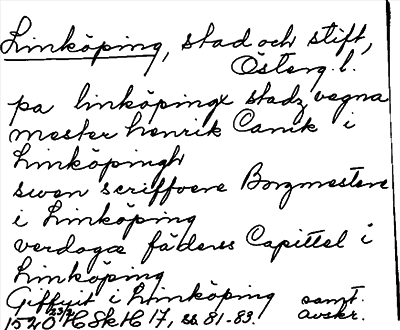 Linköping, stad och stift,
Österg. l.
pa linköpingx stadz vegna
mester henrik Canik i
Linköpingh
swen scriffvere Borgmestere
i Linköping
verdogæ fäderes Capittel i
Linköping
Giffvit i Linköping samt.
1520 23/2 HSkH 17, ss. 81-83. avskr.